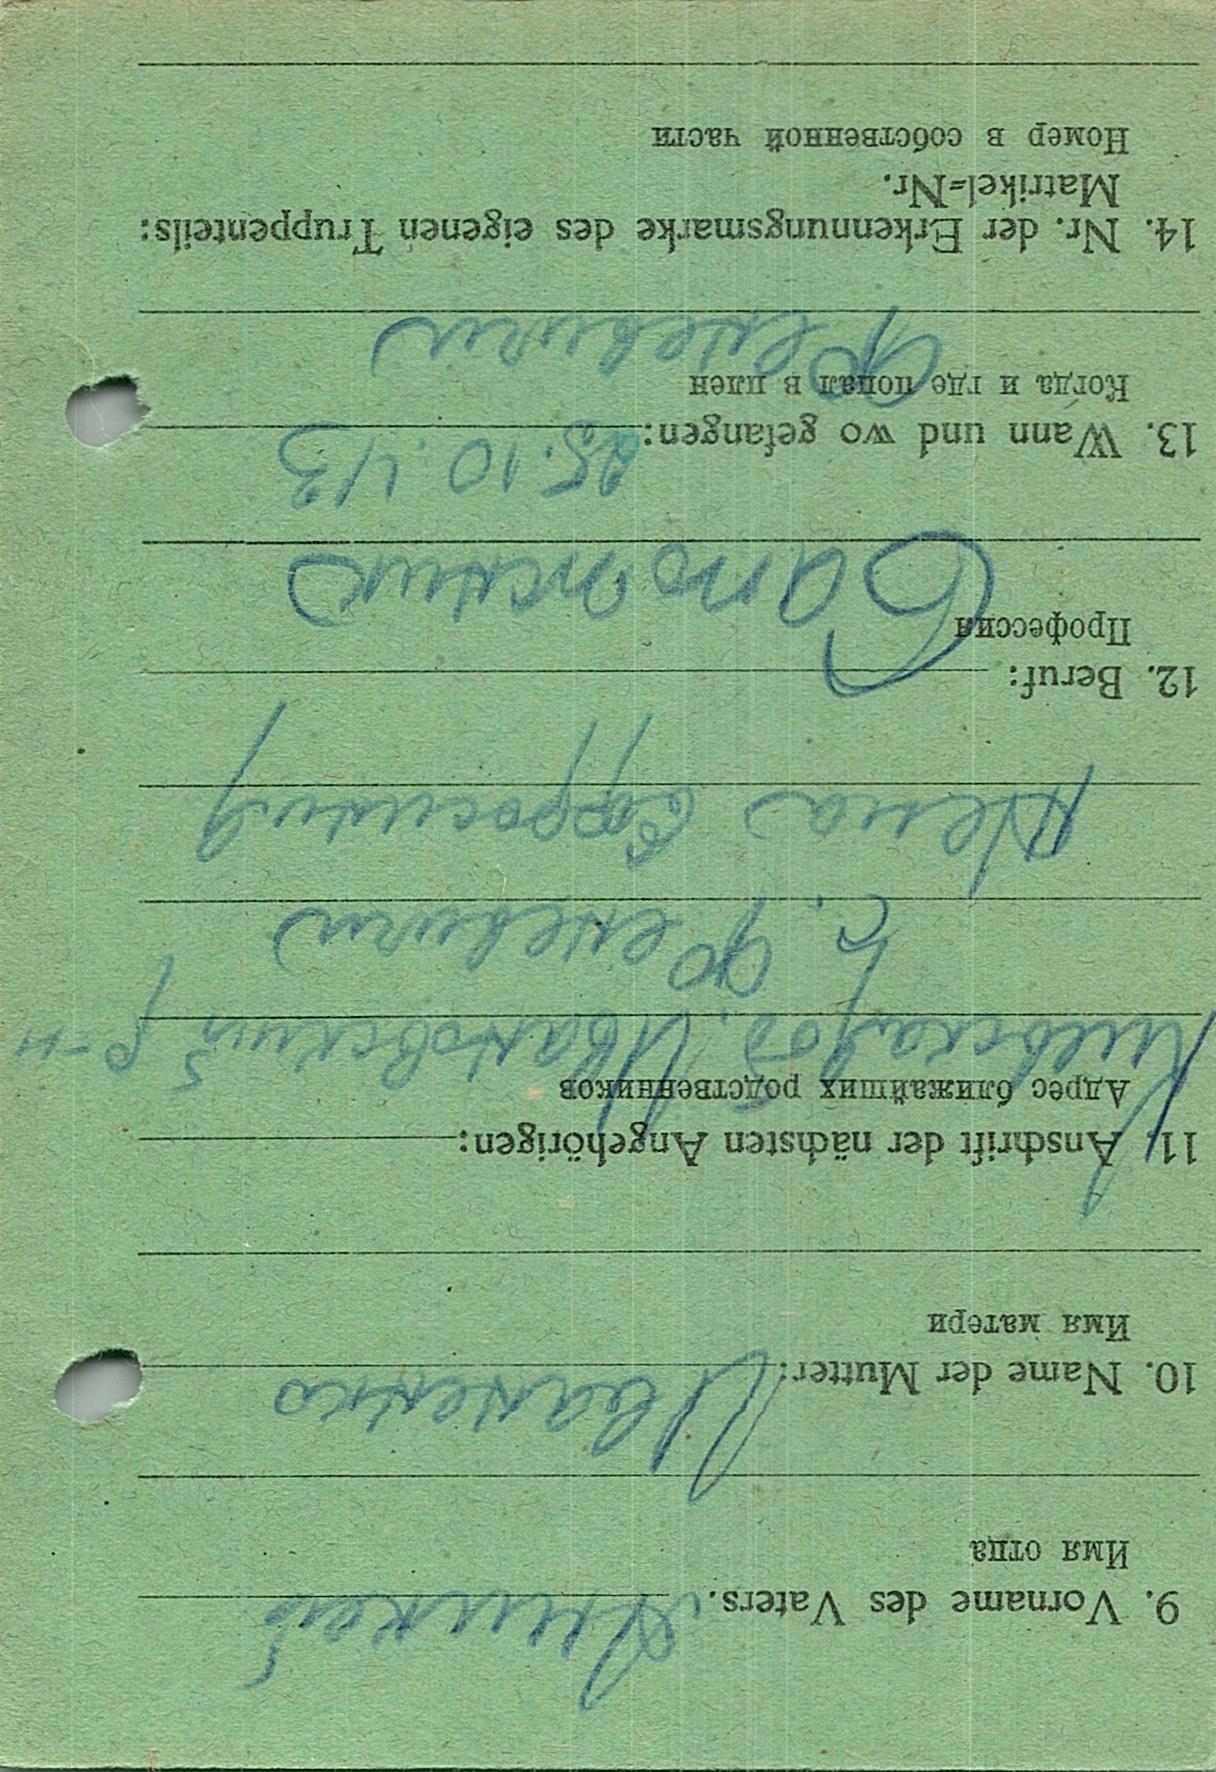 9. Vorname des Vaters.
Имя отца
10. Name der Mutter:
Иваненко
Имя матери
11. Anschrift der nächsten Angehörigen:
Адрес ближайших родственников
Киевская об. Иванковский р-н
с. Феневичи
Жена Ефросиния
12. Beruf:
Профессия
Сапожник
13. Wann und wo gefangen:
25.10.43
Когда и где попал в плен
Феневичи
14. Nr. der Erkennungsmarke des eigenen Truppenteils:
Matrikel=Nr.
Номер в собственной части